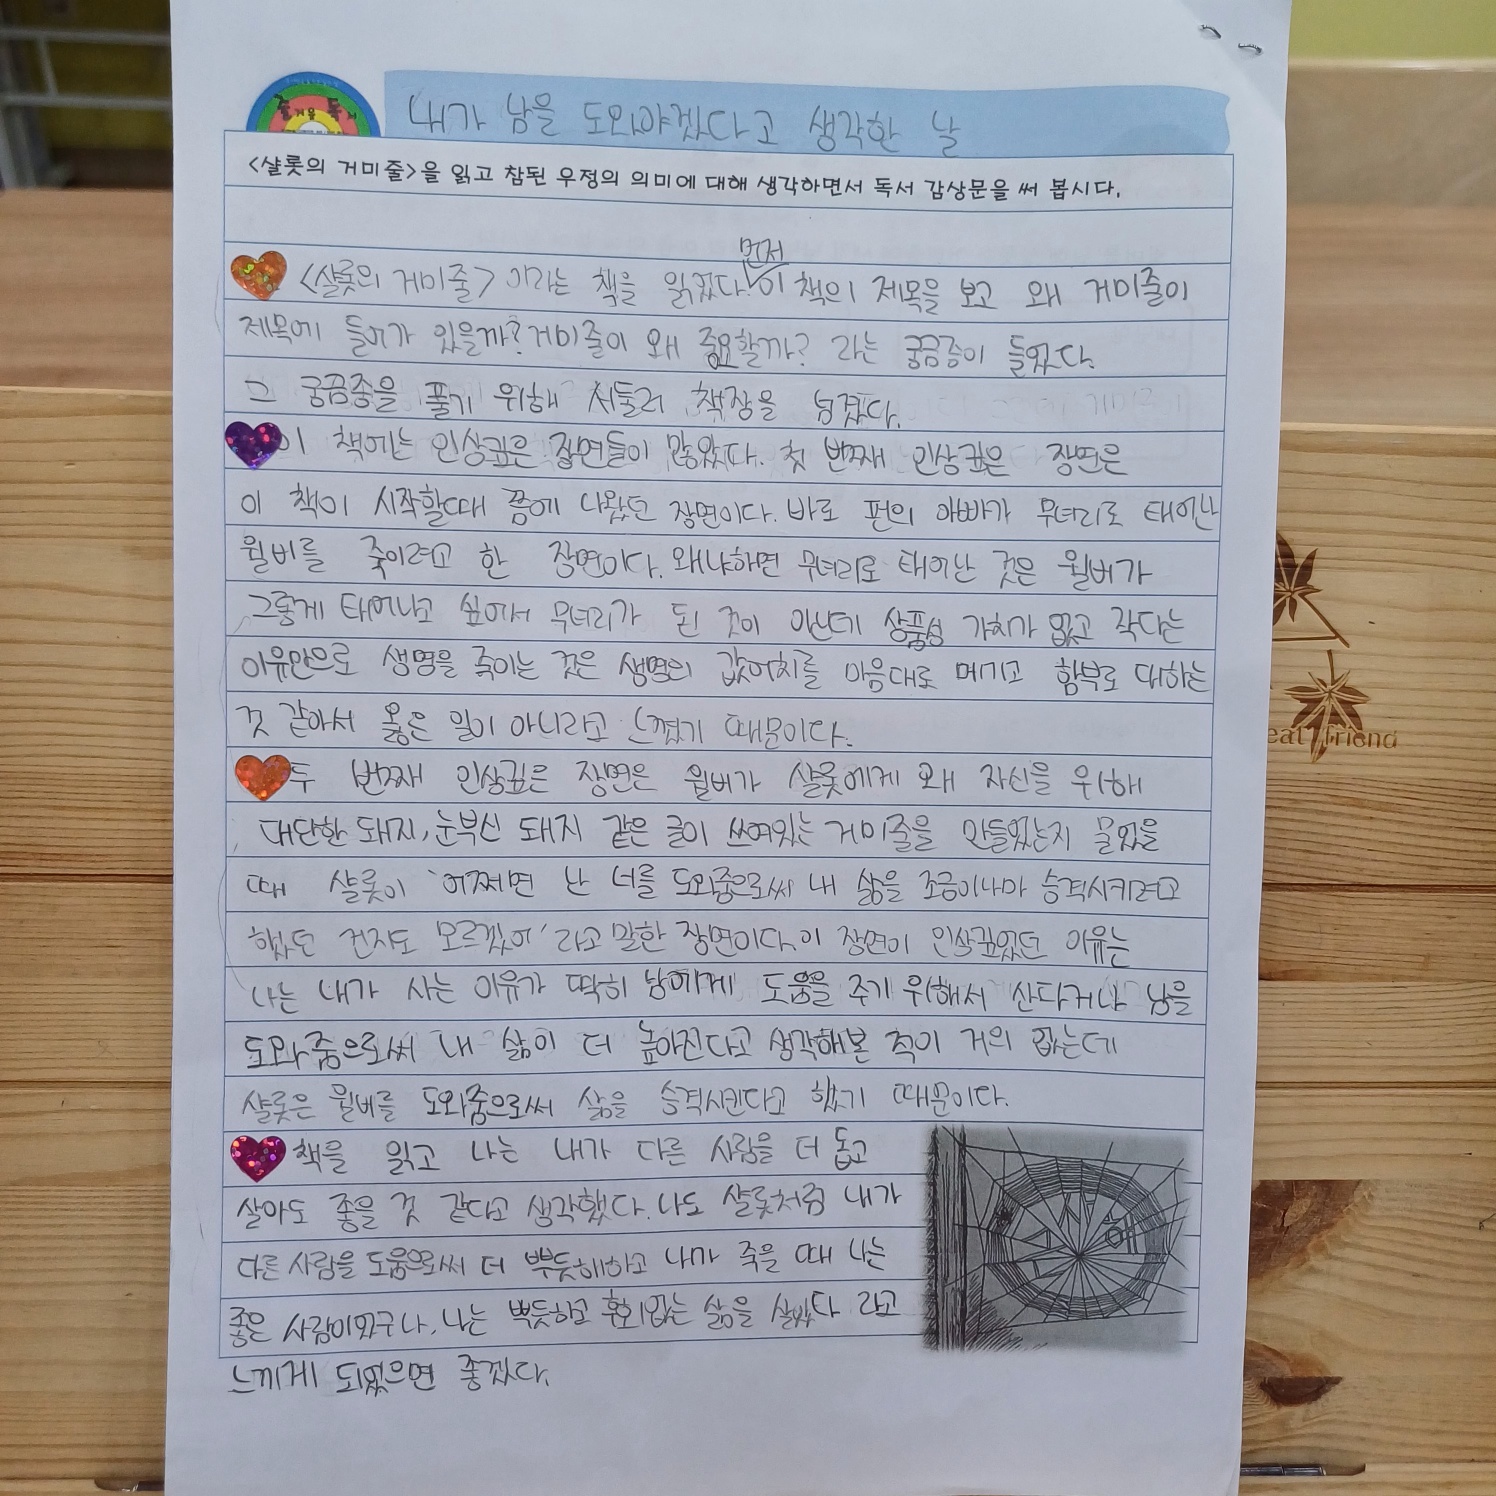 즐거운 독서
내가 남을 도와야겠다고 생각한 날
<샬롯의 거미줄>을 읽고 참된 우정의 의미에 대해 생각하면서 독서 감상문을 써 봅시다.
먼저
<샬롯의 거미줄> 이라는 책을 읽었다. 이 책의 제목을 보고 왜 거미줄이
제목에 들어가 있을까? 거미줄이 왜 중요할까? 라는 궁금증이 들었다.
그 궁금증을 풀기 위해 서둘러 책장을 넘겼다.
이 책에는 인상깊은 장면들이 많았다. 첫 번째 인상깊은 장면은
이 책이 시작할때 쯤에 나왔던 장면이다. 바로 펀의 아빠가 무녀리로 태어난
윌버를 죽이려고 한 장면이다. 왜냐하면 무녀리로 태어난 것은 윌버가
그렇게 태어나고 싶어서 무녀리가 된 것이 아닌데 상품성 가치가 없고 작다는
이유만으로 생명을 죽이는 것은 생명의 값어치를 마음대로 메기고 함부로 대하는
것 같아서 옳은 일이 아니라고 느꼈기 때문이다.
두 번째 인상깊은 장면은 윌버가 샬롯에게 왜 자신을 위해
대단한 돼지, 눈부신 돼지 같은 글이 쓰여있는 거미줄을 만들었는지 물었을
때 샬롯이 '어쩌면 난 너를 도와줌으로써 내 삶을 조금이나마 승격시키려고
했던 건지도 모르겠어' 라고 말한 장면이다. 이 장면이 인상깊었던 이유는
나는 내가 사는 이유가 딱히 남에게 도움을 주기 위해서 산다거나 남을
도와줌으로써 내 삶이 더 높아진다고 생각해본 적이 거의 없는데
샬롯은 윌버를 도와줌으로써 삶을 승격시킨다고 했기 때문이다.
책을 읽고 나는 내가 다른 사람을 더 돕고
살아도 좋을 것 같다고 생각했다. 나도 샬롯처럼 내가
다른 사람을 도움으로써 더 뿌듯해하고 내가 죽을 때 나는
좋은 사람이었구나, 나는 뿌듯하고 후회없는 삶을 살았다 라고
느끼게 되었으면 좋겠다.
eat friend